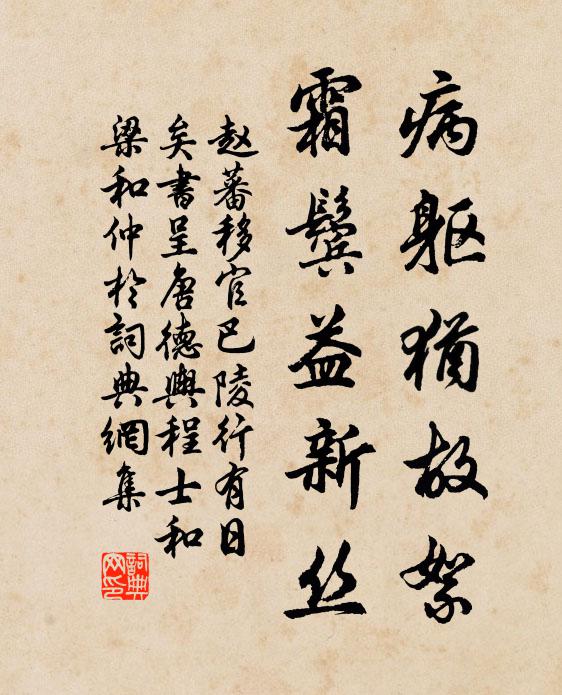 病躯犹故絮
霜鬓益新丝
赵蕃移官巴陵行有日
矣书呈唐德舆程士和
梁和仲於词典网集
詞典
网印